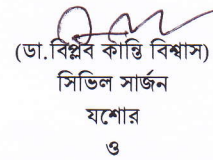 (ডা.বিপ্লব কান্তি বিশ্বাস)
সিভিল সার্জন
যশোর
ও